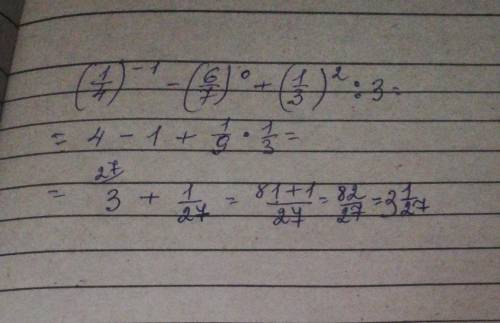 (1/4)^-1 - (6/7)^0 + (1/3)^2 : 3 =
= 4 - 1 + 1/9 · 1/3 =
= 27/ 3 + 1/27 = 81+1/27 = 82/27 = 3 1/27